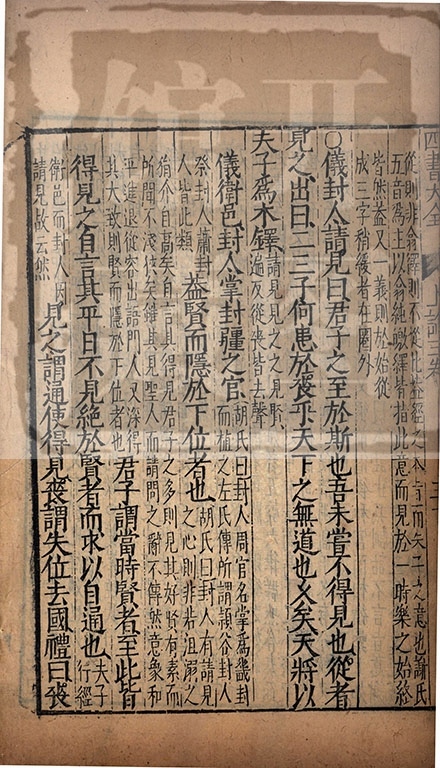 四書大全
從則非翕繹則不從此蓋經之本言而失二之意也謝氏
五音為主以翕純皦繹皆指此意而見於一時樂之始終
皆然蓋又一義則於始從
成三字稍後者在圈外
○儀封人請見曰君子之至於斯也吾未嘗不得見也從者
見之出曰二三子何患於喪乎天下之無道也久矣天將以
夫子為木鐸請見見之之見賢遍反從喪皆去聲
儀衛邑封人掌封疆之官胡氏曰封人周官名掌為畿封而植之左氏傳所謂潁谷封人
祭封人蕭封人皆此類蓋賢而隱於下位者也胡氏曰封人有請見之心則非若沮溺之
狷介自高矣自言其得見君子之多則見其好賢有素而
所聞不淺狹矣雖其見聖人而請問之辭不傳然意象和
平進退從容出語門人又深得其大致則賢而隱於下位者也君子謂當時賢者至此皆
得見之自言其平日不見絕於賢者而求以自通也夫子行經
衛邑而封人因請見故云然見之謂通使得見喪謂失位去國禮曰喪